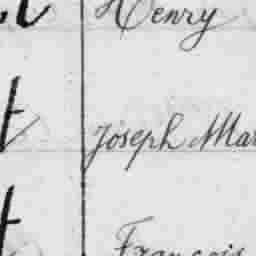 Henry
Joseph Mar
François